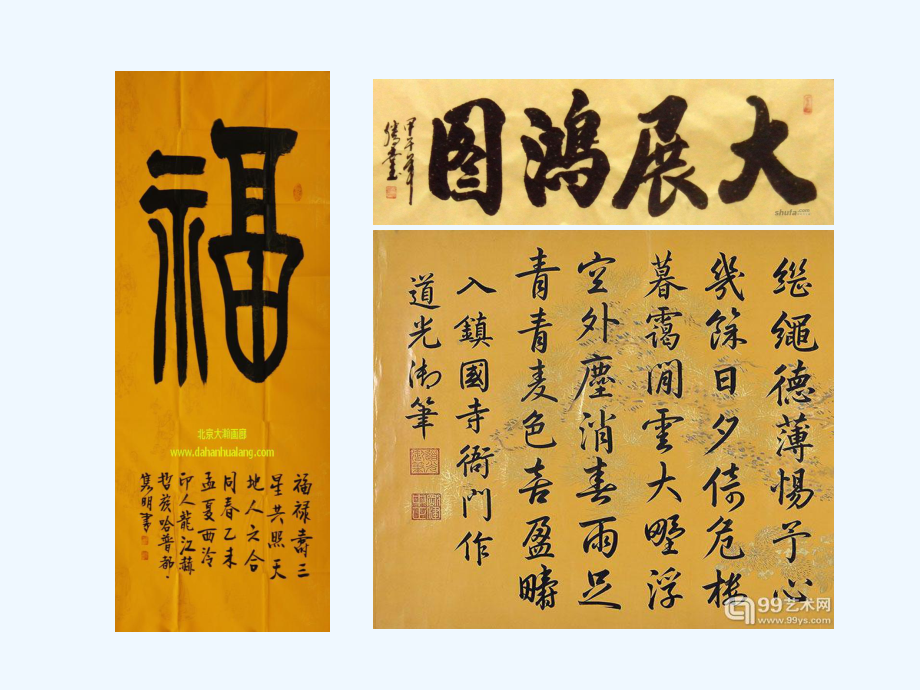 福
北京大瀚画廊
www.dahanhualang.com
福禄壽三
星共照天
地人之合
同春乙未
孟夏西泠
印人龍江赫
哲族哈普都
隽明書
大展鴻图
甲午年
書
shufa
継繩德薄惕予心
幾餘日夕倚危楼
暮靄閒雲大墅浮
空外塵消春雨足
青青麦色喜盈疇
入鎮國寺衙門作
道光御筆
99艺术网
www.99ys.com